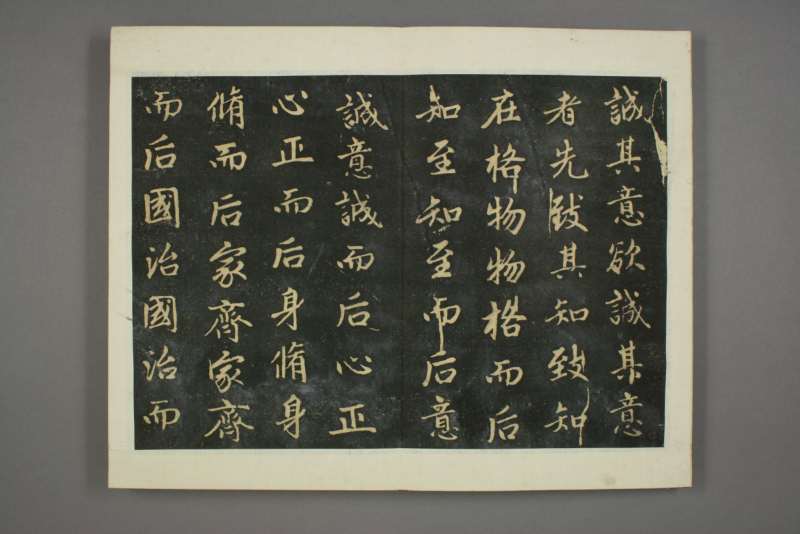 誠其意欲誠其意
者先致其知致知
在格物物格而后
知至知至而后意
誠意誠而后心正
心正而后身脩身
脩而后家齊家齊
而后國治國治而